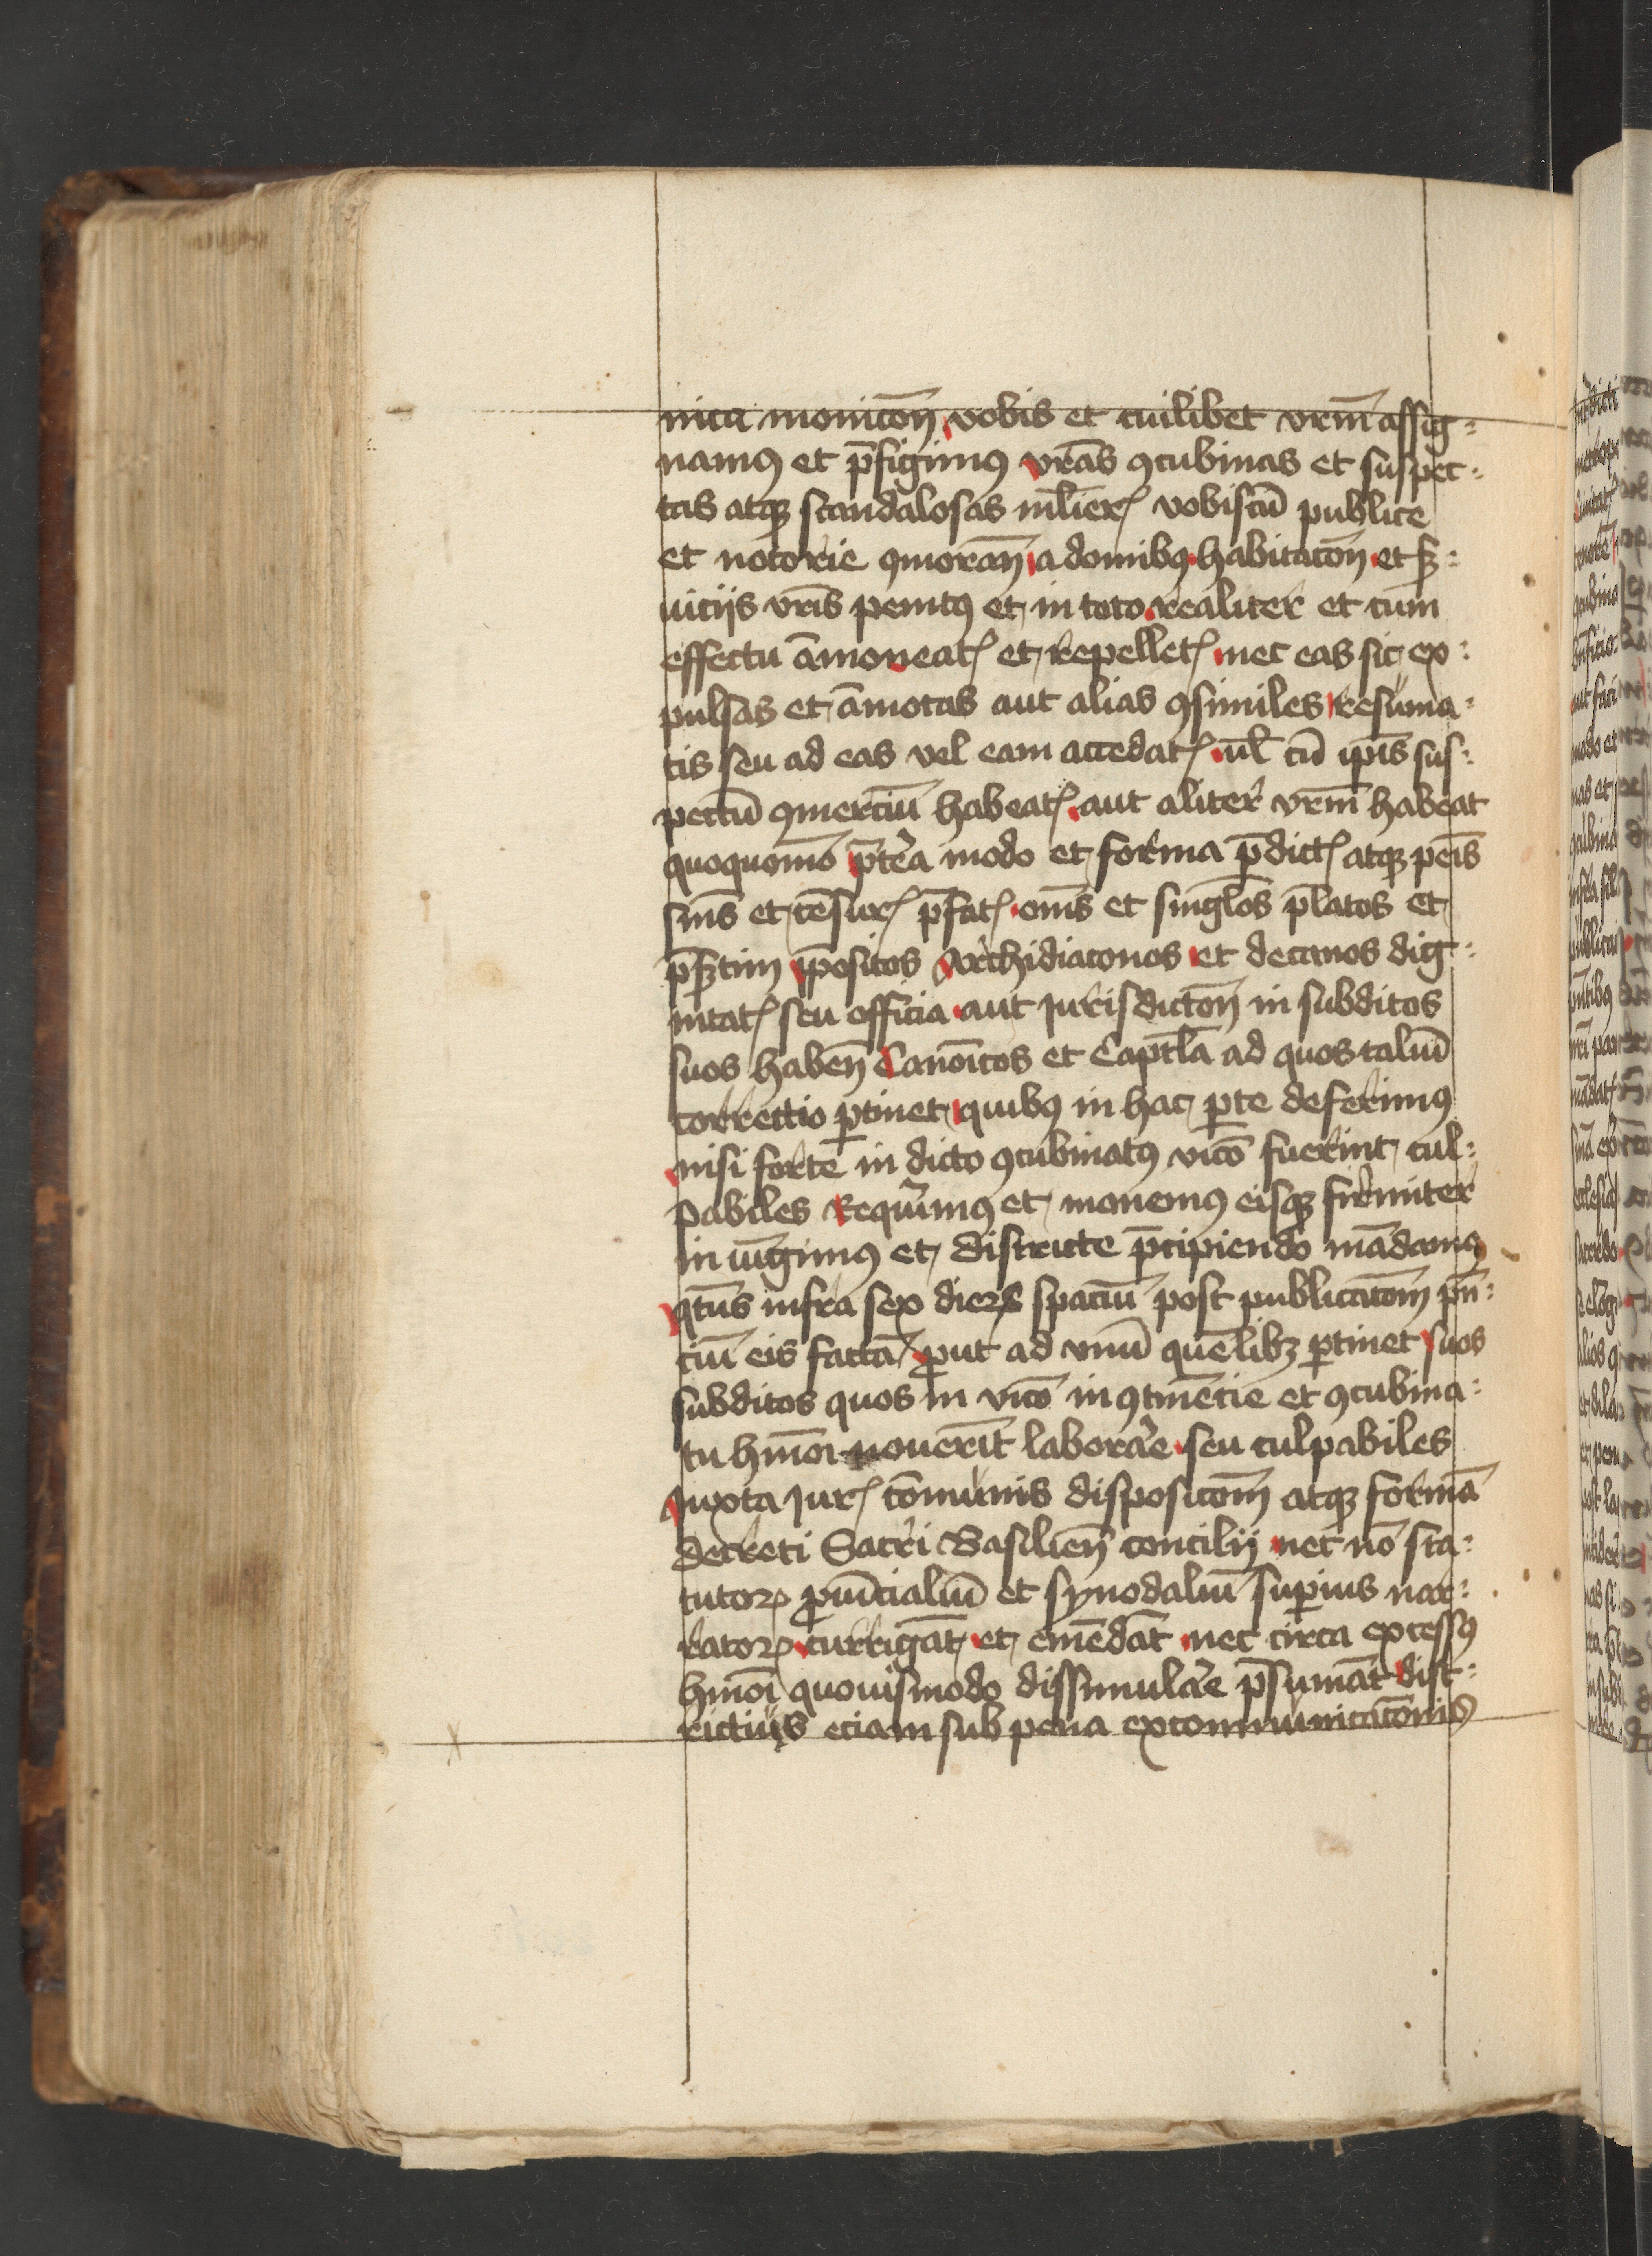 nica moniton̄ vobis et cuilibet vrm̄ assig⸗
namꝰ et p̄figimꝰ vrās ꝯcubinas et suspec⸗
tas atqꝫ scandalosas ml̄ierꝭ vobiscū publice
et notorie ꝯmoran̄ a domibꝰ habitacōn̄ et sꝫ⸗
uitijs vr̄is penitꝰ et in toto realiter et cum
effectu āmoueatꝭ et repelletꝭ nec eas sic ex⸗
pulsas et āmotas aut alias ꝯsimiles resuma⸗
tis seu ad eas vel eam accedatꝭ ul̄ cū ip̄is sus⸗
pectū ꝯmerciū habeatꝭ aut aliter vrm̄ habeat
quoquomō p̄terea modo et forma p̄dictꝭ atqꝫ peīs
snīs et cēsurꝭ p̄fatꝭ om̄s et singl̄os p̄latos et
p̄sꝫtim p̄positos Archidiaconos et decanos dig⸗
nitatꝭ seu officia aut Jurisdictōn̄ in subditos
suos haben̄ Canōicos et Capl̄a ad quos taliū
correctio ꝑtinet quibꝰ in hac ꝑte deferimꝰ
nisi forte in dicto ꝯcubinatꝰ vicō fuerint cul⸗
pabiles Requirimꝰ et monemꝰ eisqꝫ firmiter
in iūgimꝰ et districte p̄cipiendo mādamꝰ
qtn̄s infra sex dierꝝ spaciū post publicacōm pn̄⸗
ciū eis factā ꝓut ad vnū quēlibꝫ ꝑtinet suos
subditos quos in vicō inꝯtinētie et ꝯcubina⸗
tu hmōi nouerīt laborare seu culpabiles
Juxta Jurꝭ cōmunis disposicōm atqꝫ formā
decreti Sacri Basilien̄ concilij nec nō sta⸗
tutorꝝ ꝓuīcialiū et synodaliū suꝑius nar⸗
ratorꝝ currigāt et emēdāt nec circa excessꝰ
hmōi quouismodo dissimulare p̄sumāt dist⸗
rictius etiam sub pena excommunicacōnis